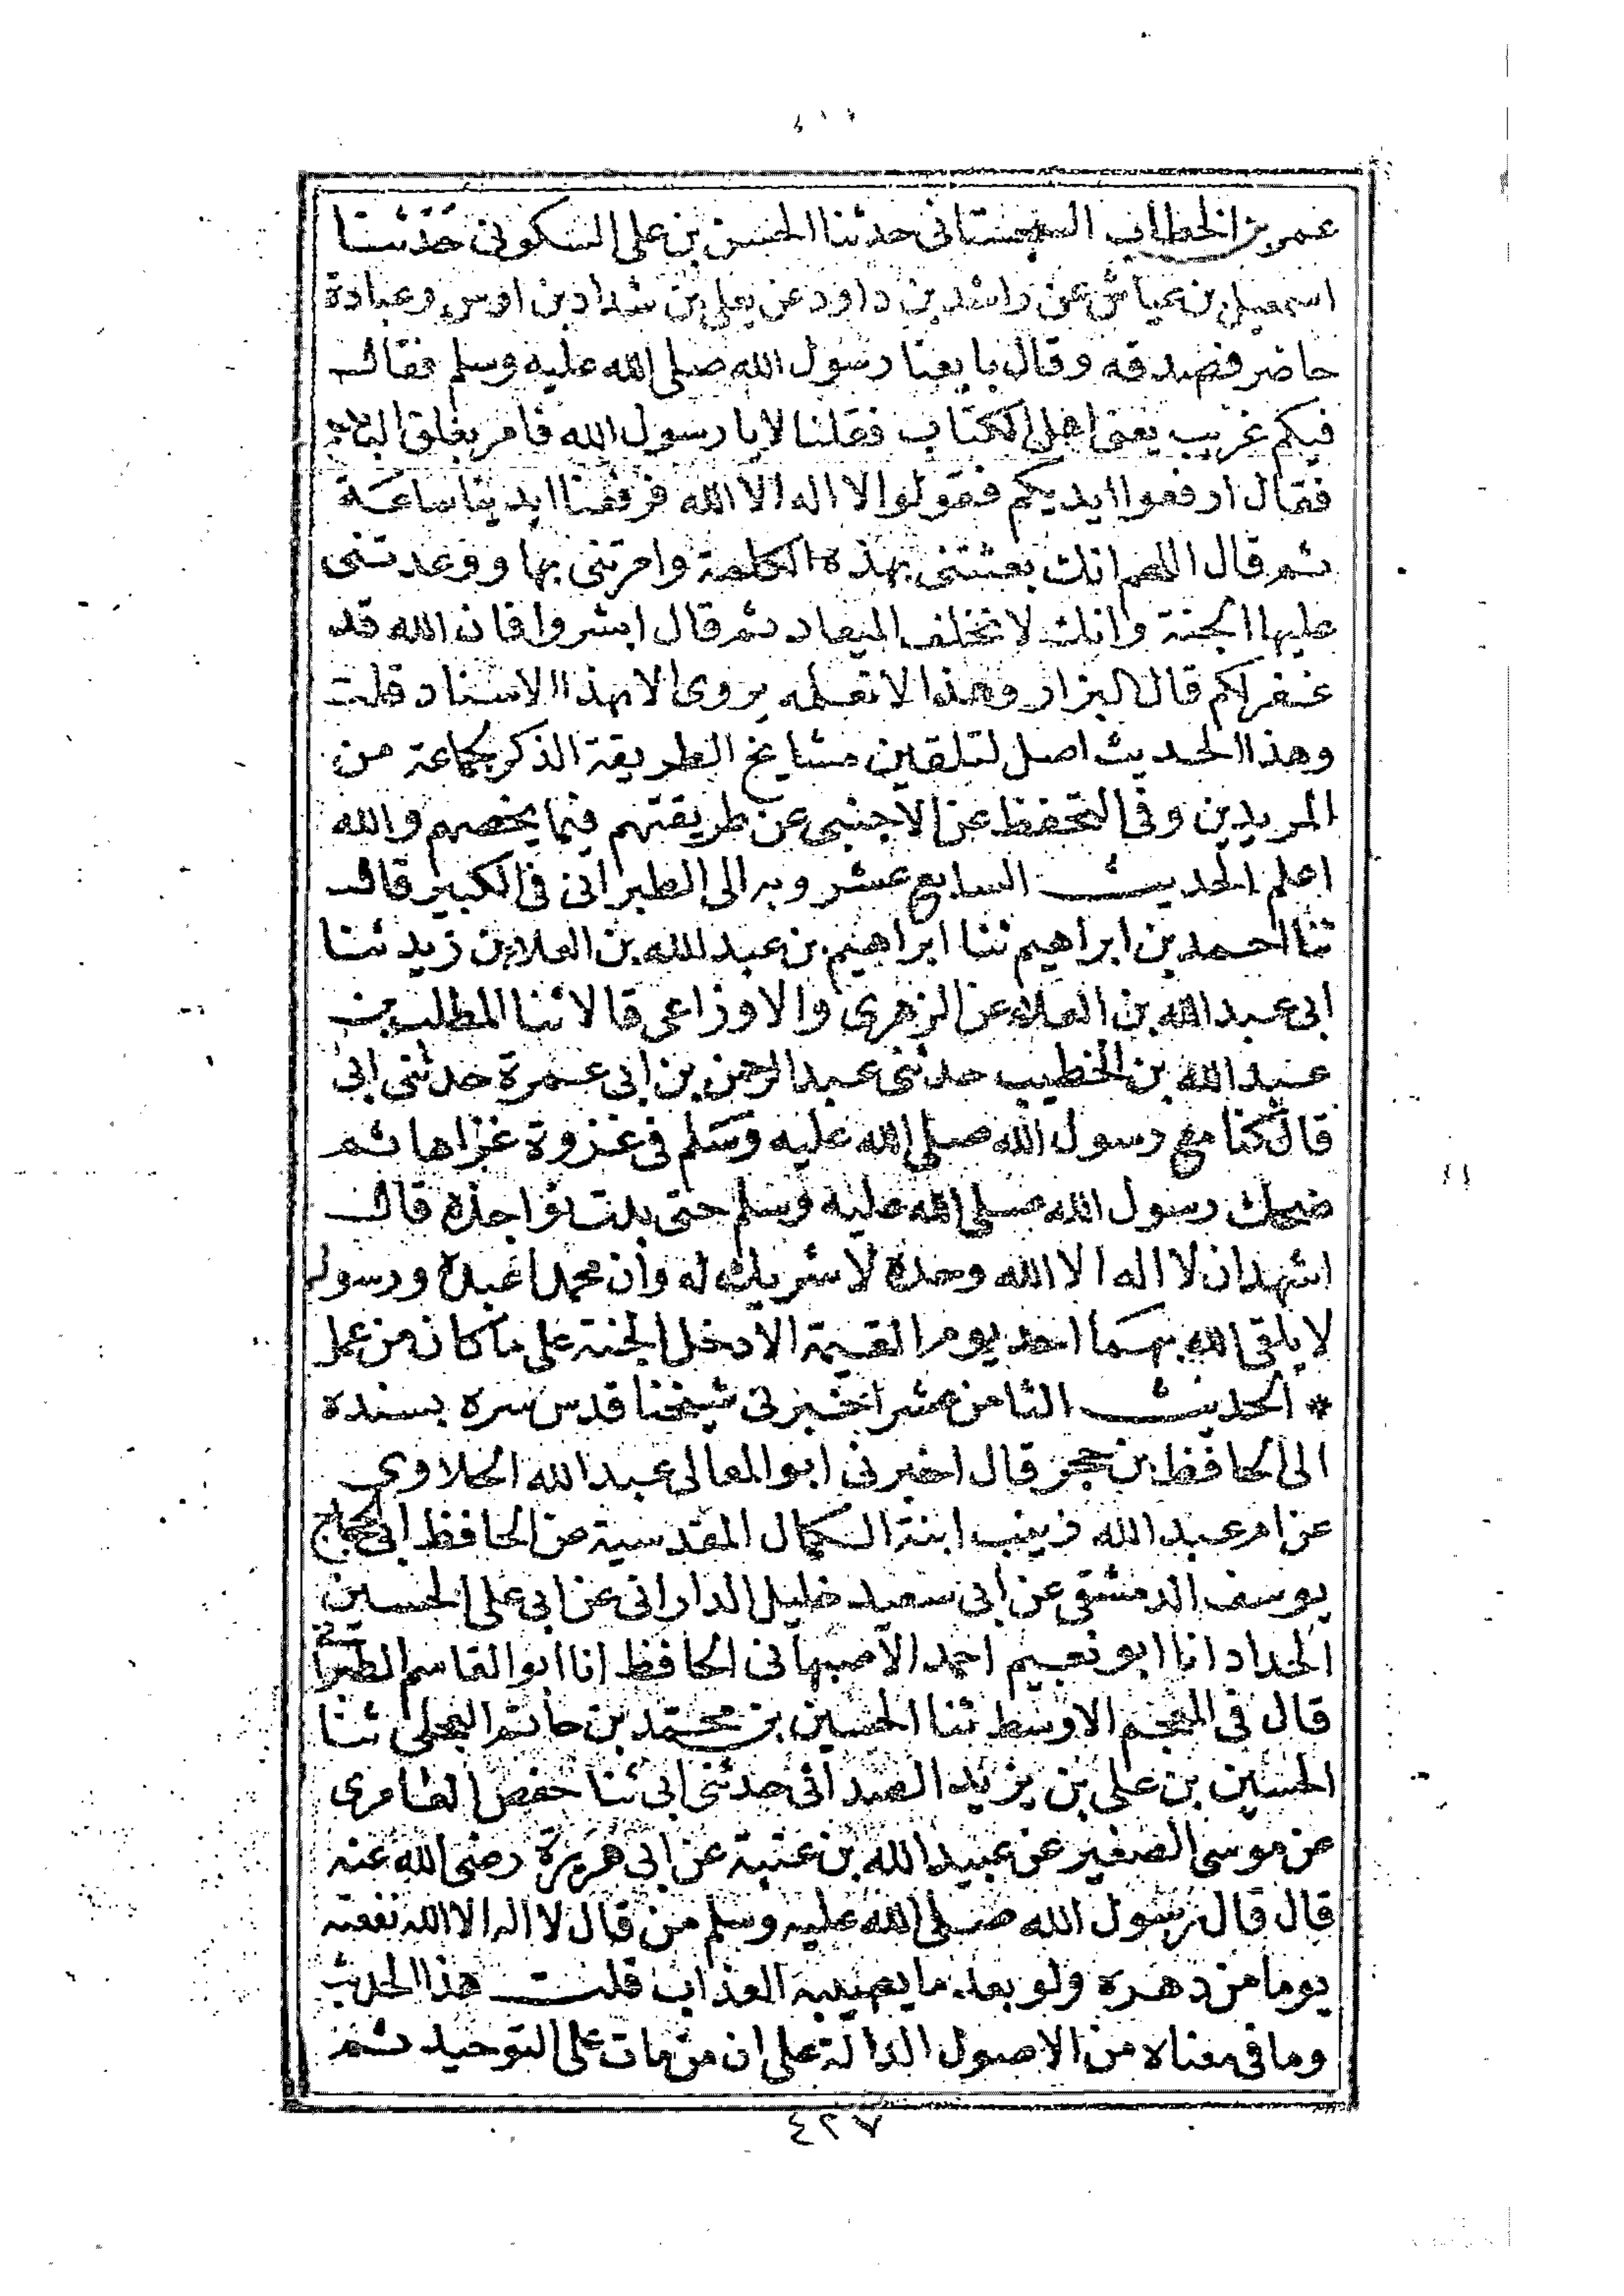 عمر بن الخطاب السجستانى حدثنا الحسن بن على السكونى حدثنا
اسمعيل بن عياش عن راشد بن داود عن يعلى بن شداد بن اوس وعبادة
حاضر فصدقه وقال بايعنا رسول الله صلى الله عليه وسلم فقال
فيكم غريب يعنى اهل الكتاب فقلنا لا يا رسول الله فامر بغلق الباب
فقال ارفعوا ايديكم فقولوا لا اله الا الله فرفعنا ايدينا ساعة
ثم قال اللهم انك بعثتنى بهذه الكلمة وامرتنى بها ووعدتنى
عليها الجنة وانك لا تخلف الميعاد ثم قال ابشروا فان الله قد
غفر لكم قال البزار وهذا لا نعلمه يروى الا بهذا الاسناد قلت
وهذا الحديث اصل لتلقين مشايخ الطريقة الذكر جماعة من
المريدين وفى التحفظ عن الاجنبى عن طريقتهم فيما يخصهم والله
اعلم الحديث السابع عشر وبه الى الطبرانى فى الكبير قال
ثنا احمد بن ابراهيم ثنا ابراهيم بن عبد الله بن العلاء بن زيد ثنا
ابى عبد الله بن العلاء عن الزهرى والاوزاعى قالا ثنا المطلب بن
عبد الله بن الخطيب حدثنى عبد الرحمن بن ابى عمرة حدثنى ابى
قال كنا مع رسول الله صلى الله عليه وسلم فى غزوة غزاها ثم
ضحك رسول الله صلى الله عليه وسلم حتى بدت نواجذه قال
اشهد ان لا اله الا الله وحده لا شريك له وان محمدا عبده ورسوله
لا يلقى الله بهما احد يوم القيمة الا دخل الجنة على ما كان من عمل
* الحديث الثامن عشر اخبرنى شيخنا قدس سره بسنده
الى الحافظ بن حجر قال اخبرنى ابو المعالى عبد الله الحلاوى
عن ام عبد الله زينب ابنة الكمال المقدسية عن الحافظ ابى الحجاج
يوسف الدمشقى عن ابى سعيد خليل الدارانى عن ابى على الحسين
الحداد انا ابو نعيم احمد الاصبهانى الحافظ انا ابو القاسم الطبرانى
قال فى المعجم الاوسط ثنا الحسين بن محمد بن حاتم العجلى ثنا
الحسين بن على بن يزيد الصدائى حدثنى ابى ثنا حفص الغامرى
عن موسى الصغير عن عبيد الله بن عتبة عن ابى هريرة رضى الله عنه
قال قال رسول الله صلى الله عليه وسلم من قال لا اله الا الله نفعته
يوما من دهره ولو بعد ما يصيبه العذاب قلت هذا الحديث
وما فى معناه من الاصول الدالة على ان من مات على التوحيد ثم
٤٢٧